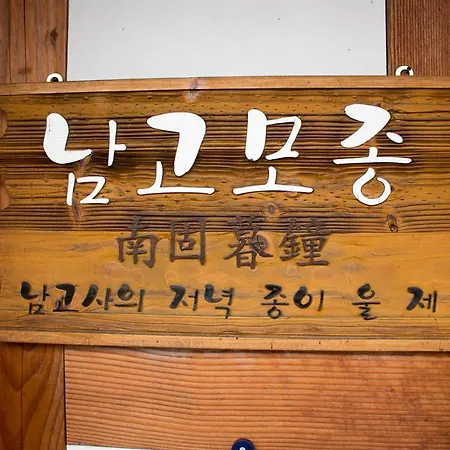 남고모종
南固暮鐘
남고사의 저녁 종이 울 제